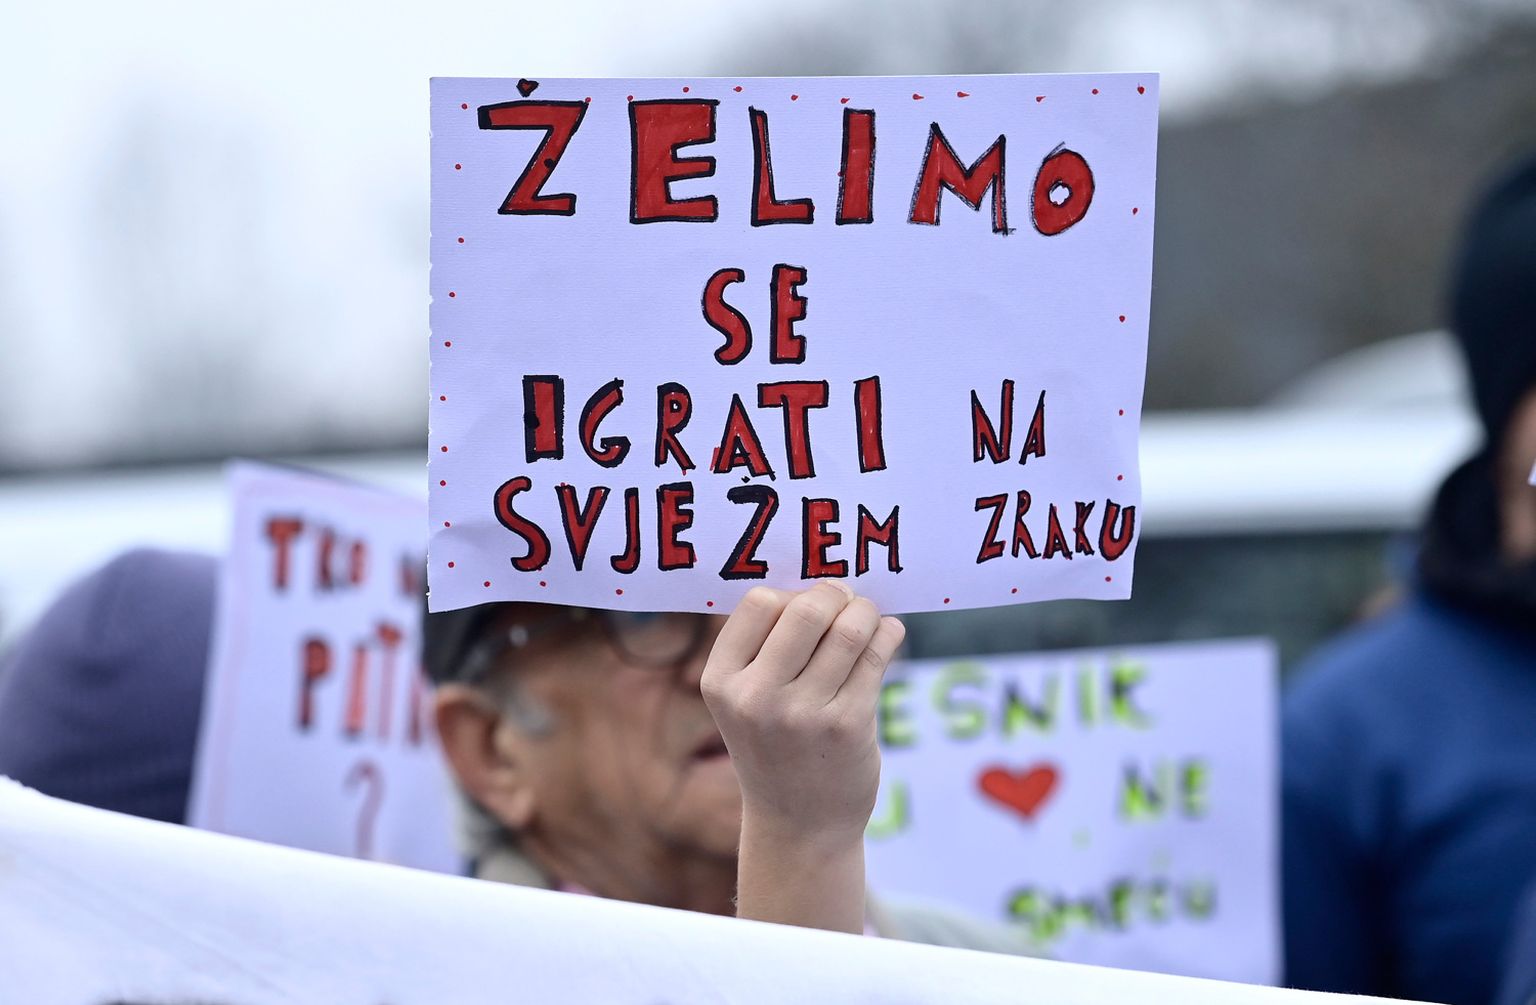 ŽELIMO
SE
IGRATI NA
SVJEŽEM ZRAKU
TKO
?
NE
SMEĆU